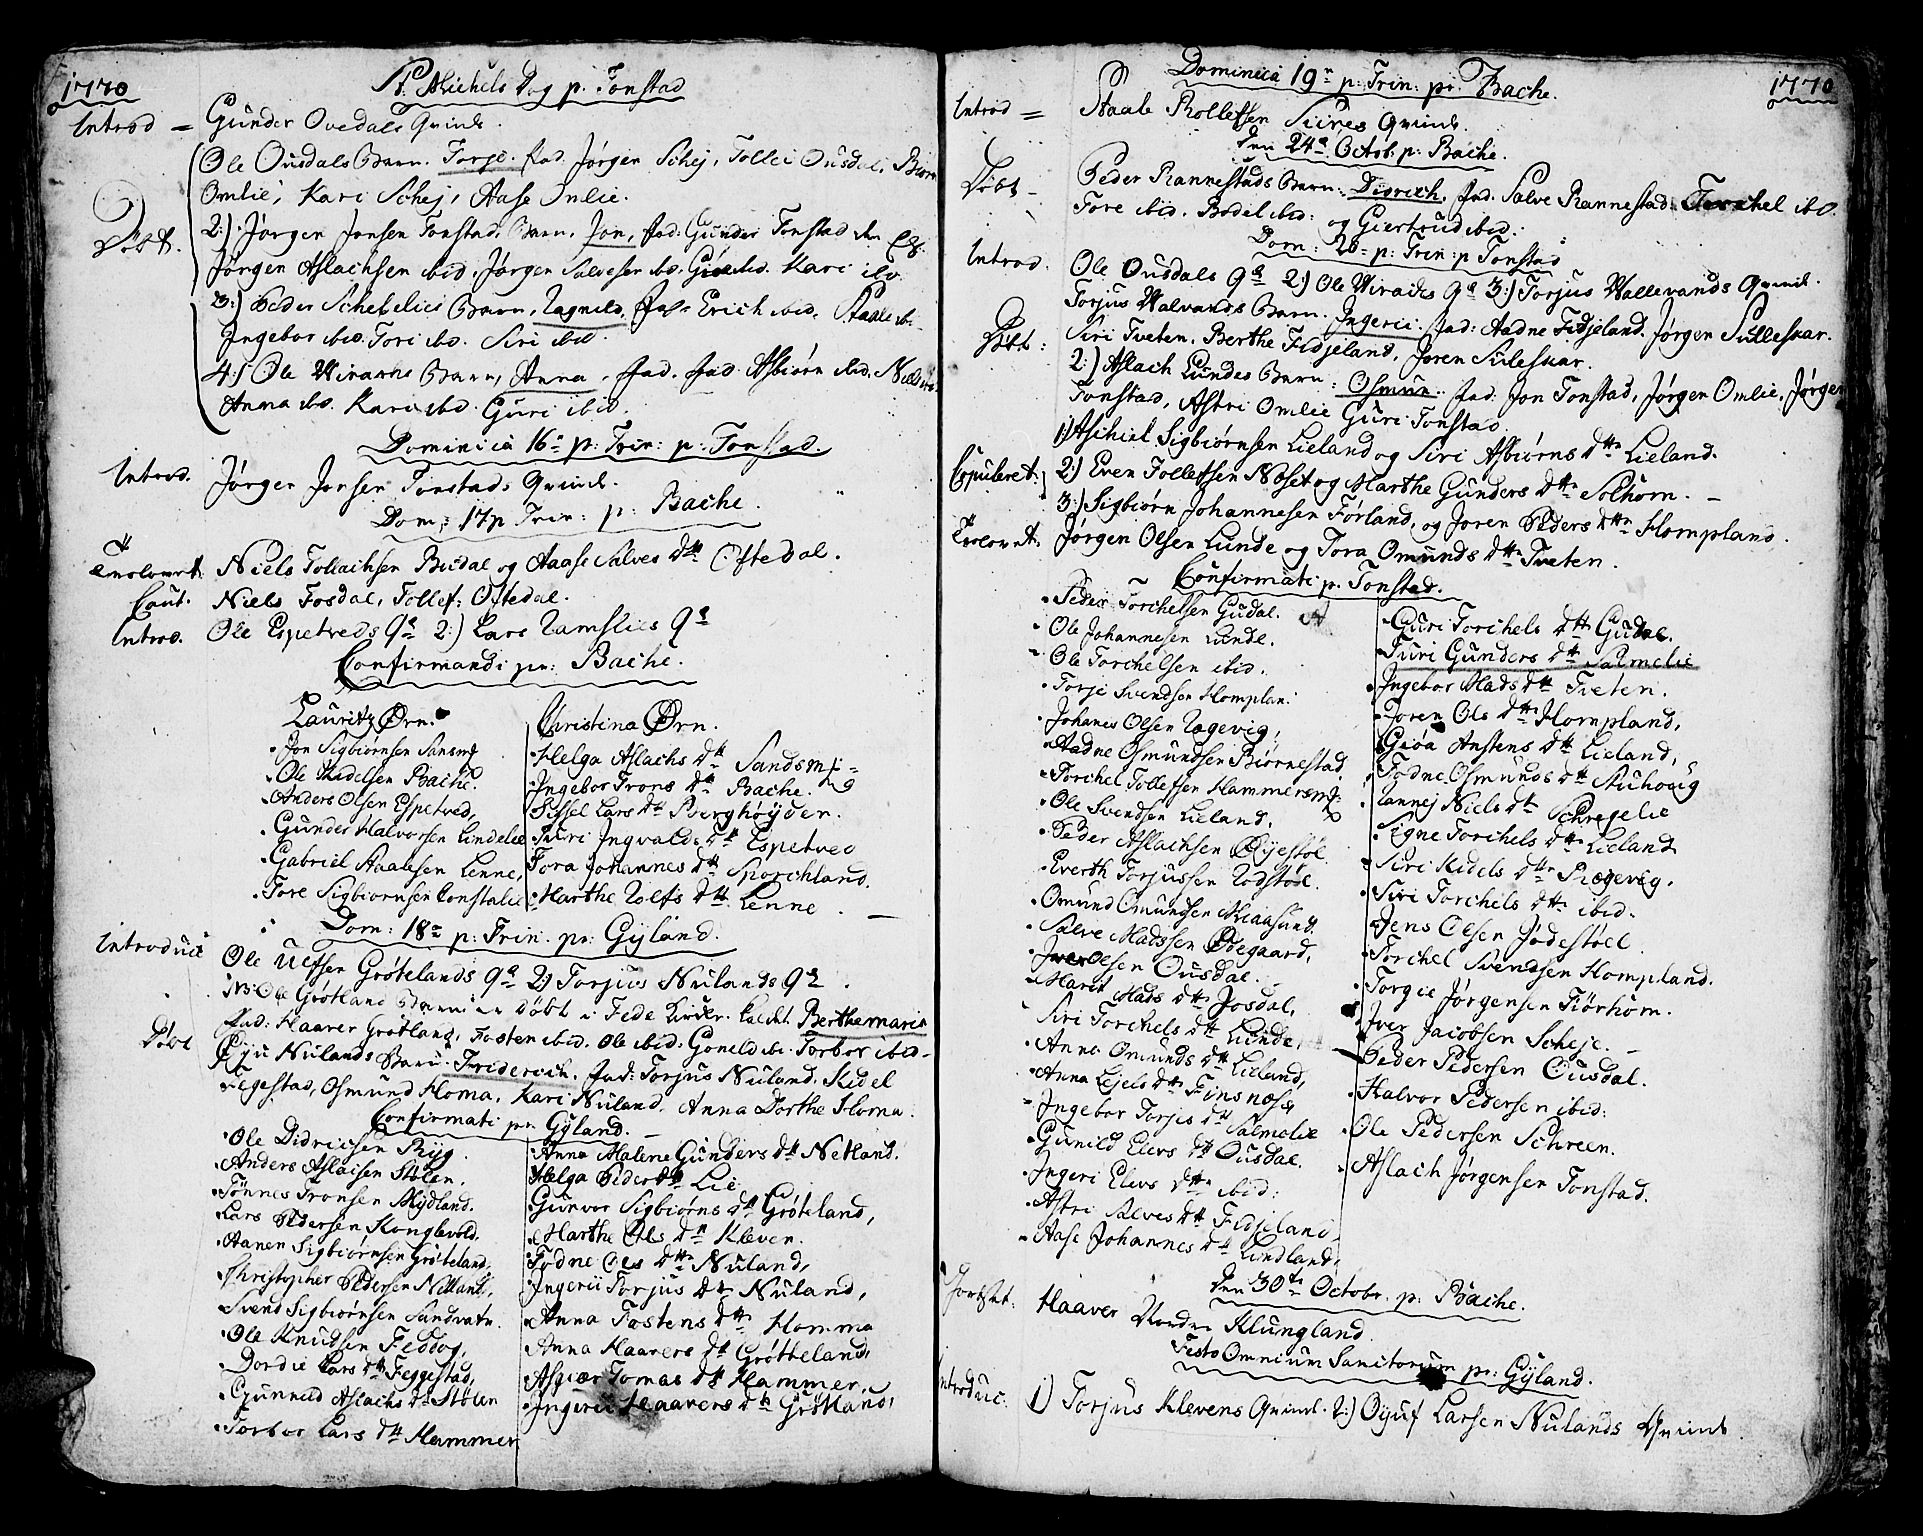 1770
St. Michels Dag p. Tonstad
Introd = Gunder Ovedals Qvinde.
Ole Ousdals Barn. Torje. Fad. Jørgen Schej, Tollei Ousdal, Biørn
Omlie, Kari Schej, Aase Omlie.
Døbt.
2:) Jørgen Jonsen Tonstads Barn, Jon, Fad: Gunder Tonstad den
Jørgen Aslachsen ibid. Jørgen Salvesen ibd. Kari ibd.
3:) Peder Schebelies Barn, Ragnild. Fad. Erich ibid. Staale ib.
Ingebor ibid. Tori ibd. Siri ibid.
4:) Ole Virachs Barn, Anna. Fad. Fad. Asbiørn ibid. Niels
Anna ibd. Kari ibd. Guri ibid.
Dominica 16a p: Trin: p: Tonstad.
Introd. Jørgen Jonsen Tonstads Qvinde.
Dom: 17 p Trin: p: Bache.
Trolovet. Niels Tollachsen Bisdal og Aaase Salves Dtt Oftedal.
Caut. Niels Fosdal, Tollef: Oftedal.
Introd. Ole Espetveds Qv 2:) Lars Ramslies Qv
Confirmandi pr: Bache.
Lauritz Ørn.
Jon Sigbiørnsen Sansmj
Ole Kidelsen Bache.
Anders Olsen Espetved,
Gunder Halvorsen Lindelie
Gabriel Staalesen Lenne,
Tore Sigbiørnsen Constalie
Christina Ørn.
Helga Aslachs Dtt Sandsmj=
Ingebor Trons Dtt Bache.
Sissel Lars Dtt Berghøyden.
Turi Ingvalds Dtt Espetved
Tora Johannes Dtt Sporchland.
Marthe Rolfs Dtt Lenne.
Dom: 18a p: Trin. pr: Gyland.
Introduce Ole Ulfsen Grøtelands Qv 2:) Torjus Nulands Qv
NB: Ole Grøtland Barn er døbt i Fede Kirke kaldet Berthemaria
Fad: Haaver Grøtland, Tosten ibid. Ole ibid: Goneld ibi. Torbor ibid.
Døbt Øju Nulands Barn. Friderich. Fad: Torjus Nuland, Kidel
Fegestad, Osmund Homa, Kari Nuland, Anna Dorthe Homa.
Confirmati pr Gyland.
Ole Didrichsen Ryg.
Anders Aslacsen Stølen,
Tønnes Tronsen Mydland.
Lars Pedersen Konglevold.
Aanen Sigbiørnsen Grøteland,
Christopher Pedersen Netland,
Svend Sigbiørnsen Sandvatn.
Ole Knudsen Feddog,
Dordie Lars Dtt Feggestad,
Gunneld Aslachs Dtt Stølen
Torbor Lars Dtt Hammer
Anna Malene Gunders Dtt Netland.
Helga Peders Dtt Lie
Gunvor Sigbiørns Dtt Grøteland,
Marthe Ols Dtt Kleven.
Todne Ols Dtt Nuland,
Ingerii Torjus Dtt Nuland,
Anna Tostens Dtt Homma
Anna Haavers Dtt Grøtteland,
Asgiær Tomas Dtt Hammer,
Ingerii Haavers Dtt Grøtland,
1770
Dominica 19a p: Trin: pr: Bache.
Introd = Staale Rollefsen Siires Qvinde.
Den 24de Octob. p: Bache.
Døbt - Peder Rannestads Barn. Didrich. Fad. Salve Rannestad. Torchel ibd.
Tore ibid. Bodel ibid: og Giertrud ibid:
Dom: 20 p: Trin: p Tonstad
Introd. Ole Ousdals Qv 2:) Ole Virachs Qv 3:) Torjus Wallevands Qvinde.
Døbt: Torjus Walvands Barn. Ingerii. Fad: Aadne Fidjeland. Jørgen Sulleskar.
Siri Tveten, Berthe Fidjeland, Joren Suleskar.
2:) Aslach Lundes Barn: Osmun. Fad: Jon Tonstad, Jørgen Omlie, Jørgen
Tonstad, Astri Omlie Guri Tonstad.
Copuleret:
1:) Aschiel Sigbiørnsen Lieland og Siri Asbiørns Dtt Lieland.
2:) Even Tollefsen Noset og Marthe Gunders Dtt Solhom. -
3:) Sigbiørn Johannesen Førland, og Joren Peders Dtt Hompland.
Trolovet. Jørgen Olsen Lunde og Tora Omunds Dtt Tveten.
Confirmati p. Tonstad.
Peder Torchelsen Gudal.
Ole Johannesen Lunde.
Ole Torchelsen ibid.
Torje Svendsen Homplan.
Johanes Olsen Ragevig,
Aadne Osmundsen Biørnestad
Torchel Tollefsen Hammersmj:
Ole Svendsen Lieland,
Peder Aslachsen Øyestøl
Everth Torjussen Rodstøl.
Omund Omundsen Miaasund.
Salve Madssen Ødegaard,
Iver Olsen Ousdal.
Marit Mads Dtt Josdal,
Siri Torchels Dtt Lunde,
Anna Omunds Dtt Lieland,
Anna Ejels Dtt Finsnæs,
Ingebor Torjes Dtt Salmelie
Gunild Elevs Dtt Ousdal.
Ingeri Elevs Dtt ibid:
Astri Salves Dtt Fidjeland
Aase Johannes Dtt Lindland,
Guri Torchels Dtt Gudal.
Turi Gunders Dtt Salmelie
Ingebor Mads Dtt Tveten.
Joren Ols Dtt Hompland,
Giøa Anstens Dtt Lieland,
Todne Osmunds Dtt Stuhovig
Rannej Niels Dtt Schregelie
Signe Torchels Dtt Lieland
Siri Kidels Dtt Rægevig.
Siri Torchels Dtt ibid.
Jens Olsen Jødestøel
Torchel Svendsen Hompland.
Torgie Jørgensen Fiørhom.
Iver Jacobsen Scheje.
Peder Pedersen Ousdal.
Halvor Pedersen ibid:
Ole Pedersen Schreen.
Aslach Jørgensen Tonstad.
Den 30te Octobr. p: Bache.
Haaver Nordre Klungland.
Festo Omnium Sanctorum pr: Gyland.
Introduc: 1) Torjus Klevens Qvinde. 2:) Øyuf Larsen Nulands Qvinde.